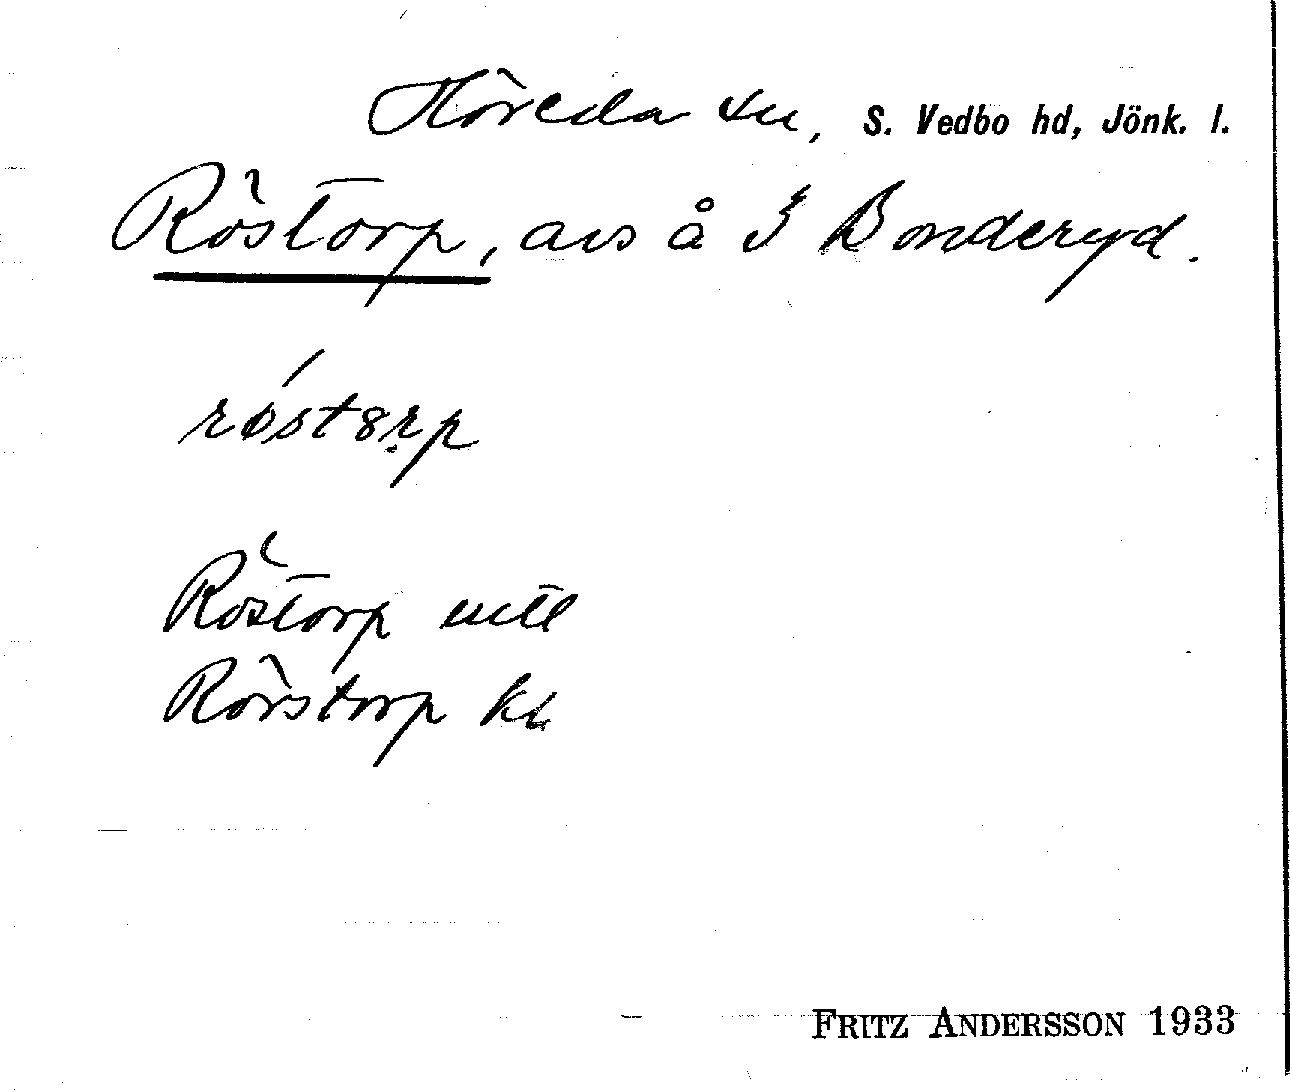 Höreda sn, S. Vedbo hd, Jönk. l.
Röstorp, avs å Bonderyd.
röstorp
Röstorp uttl
Rörstorp kb
FRITZ ANDERSSON 1933